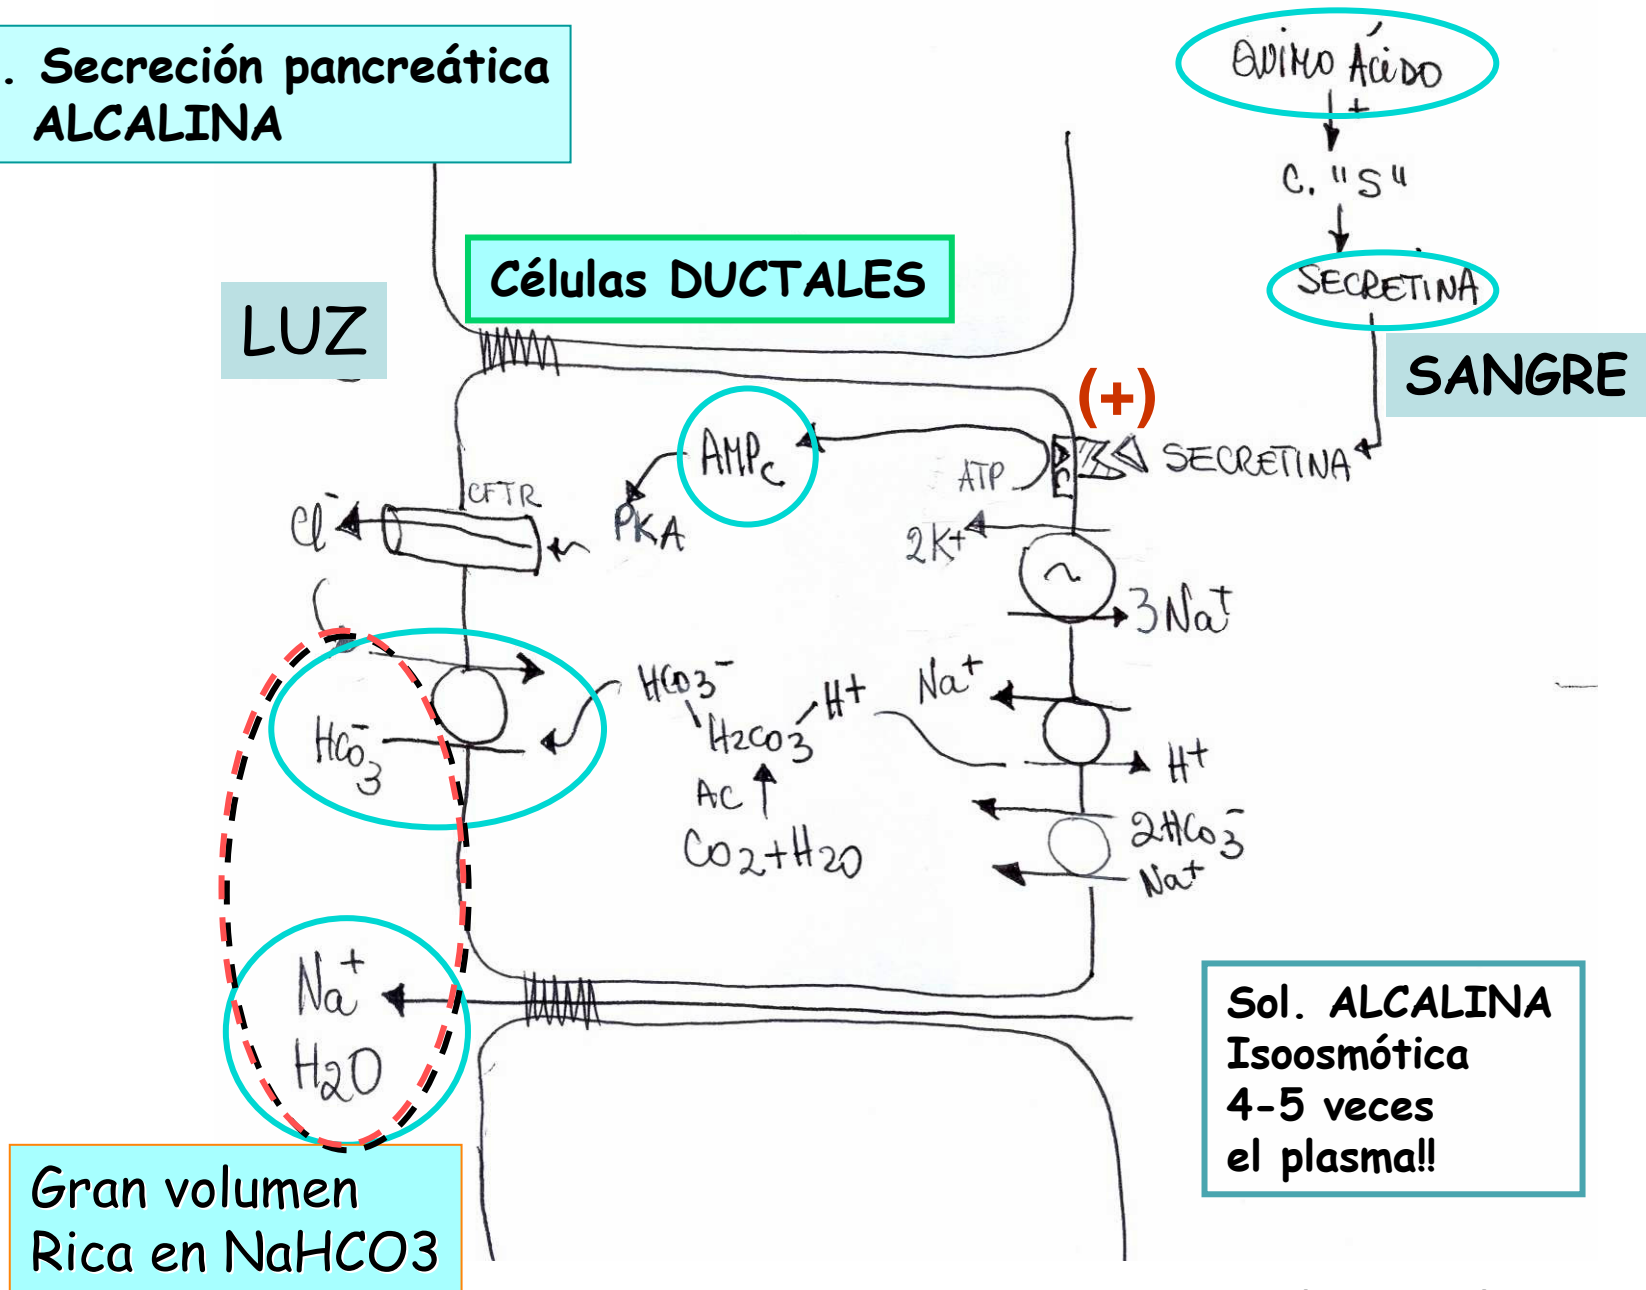 . Secreción pancreática
ALCALINA
QUIMO ÁCIDO
+
C. "S"
SECRETINA
Células DUCTALES
LUZ
SANGRE
(+)
AMPc
ATP
AC
SECRETINA
CFTR
Cl-
PKA
2K+
~
3Na+
HCO3-
H2CO3
H+
Na+
H+
HCO3-
AC
CO2+H2O
2HCO3-
Na+
Na+
H2O
Sol. ALCALINA
Isoosmótica
4-5 veces
el plasma!!
Gran volumen
Rica en NaHCO3